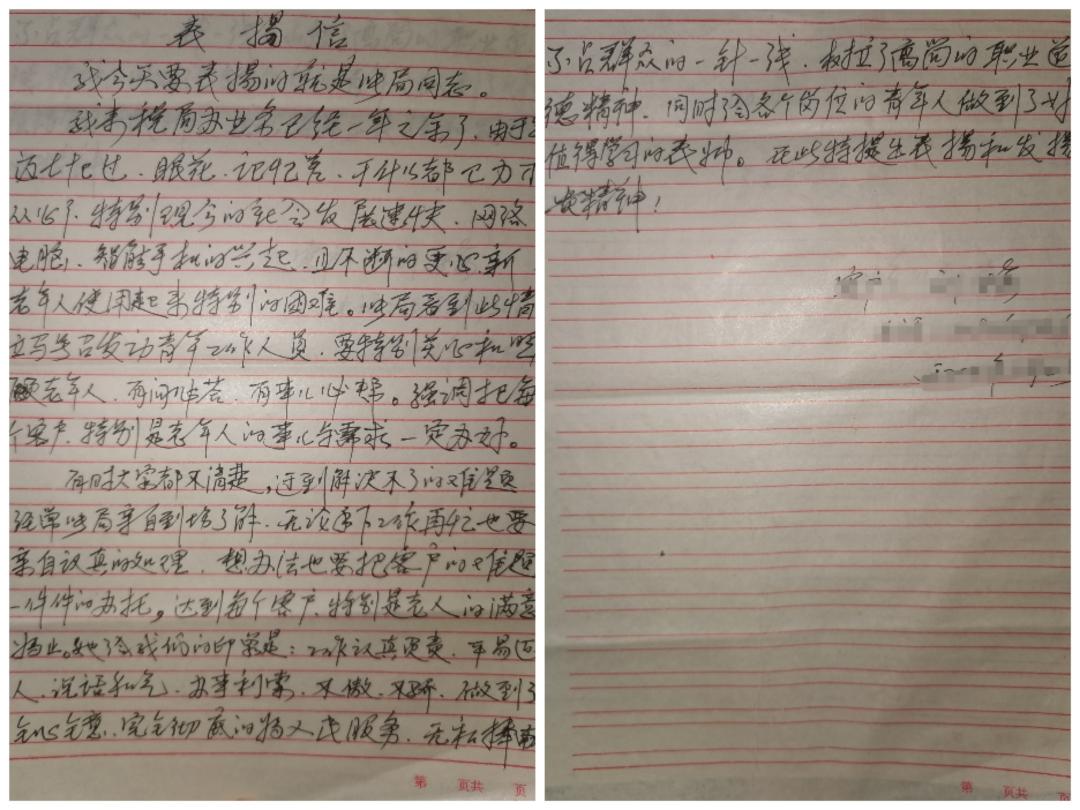 表揚信
我今天要表揚的就是张局同志。
我来税局办业务已经一年之余了,由于
近七十已过,眼花、记忆差、干什么都已力不
从心了,特别现今的社会发展速快、网络
电脑、智能手机的兴起、且不断的更心新
老年人使用起来特别的困难。张局看到此情
立马号召发动青年工作人员,要特别关心和照
顾老年人,有问必答、有事儿必帮。强调把每
个客户、特别是老年人的事儿与需求一定办好。
有时大家都不清楚,迂到解决不了的难题
经常张局亲自到场了解、无论手下工作再忙也要
亲自认真的处理、想办法也要把客户的难题
一件件的办托,达到每个客户、特别是老人的满意
为止。她给我们的印象是:工作认真负责、平易近
人、说话和气、办事利索、不傲、不骄、做到了
全心全意、完全彻底的为人民服务、无私奉
不占群众的一针一线、树立了高尚的职业道
德精神、同时给各个岗位的青年人做到了
值得学习的表师。在此特提出表揚和发揚
精神!
第 页共 页
第 页共 页